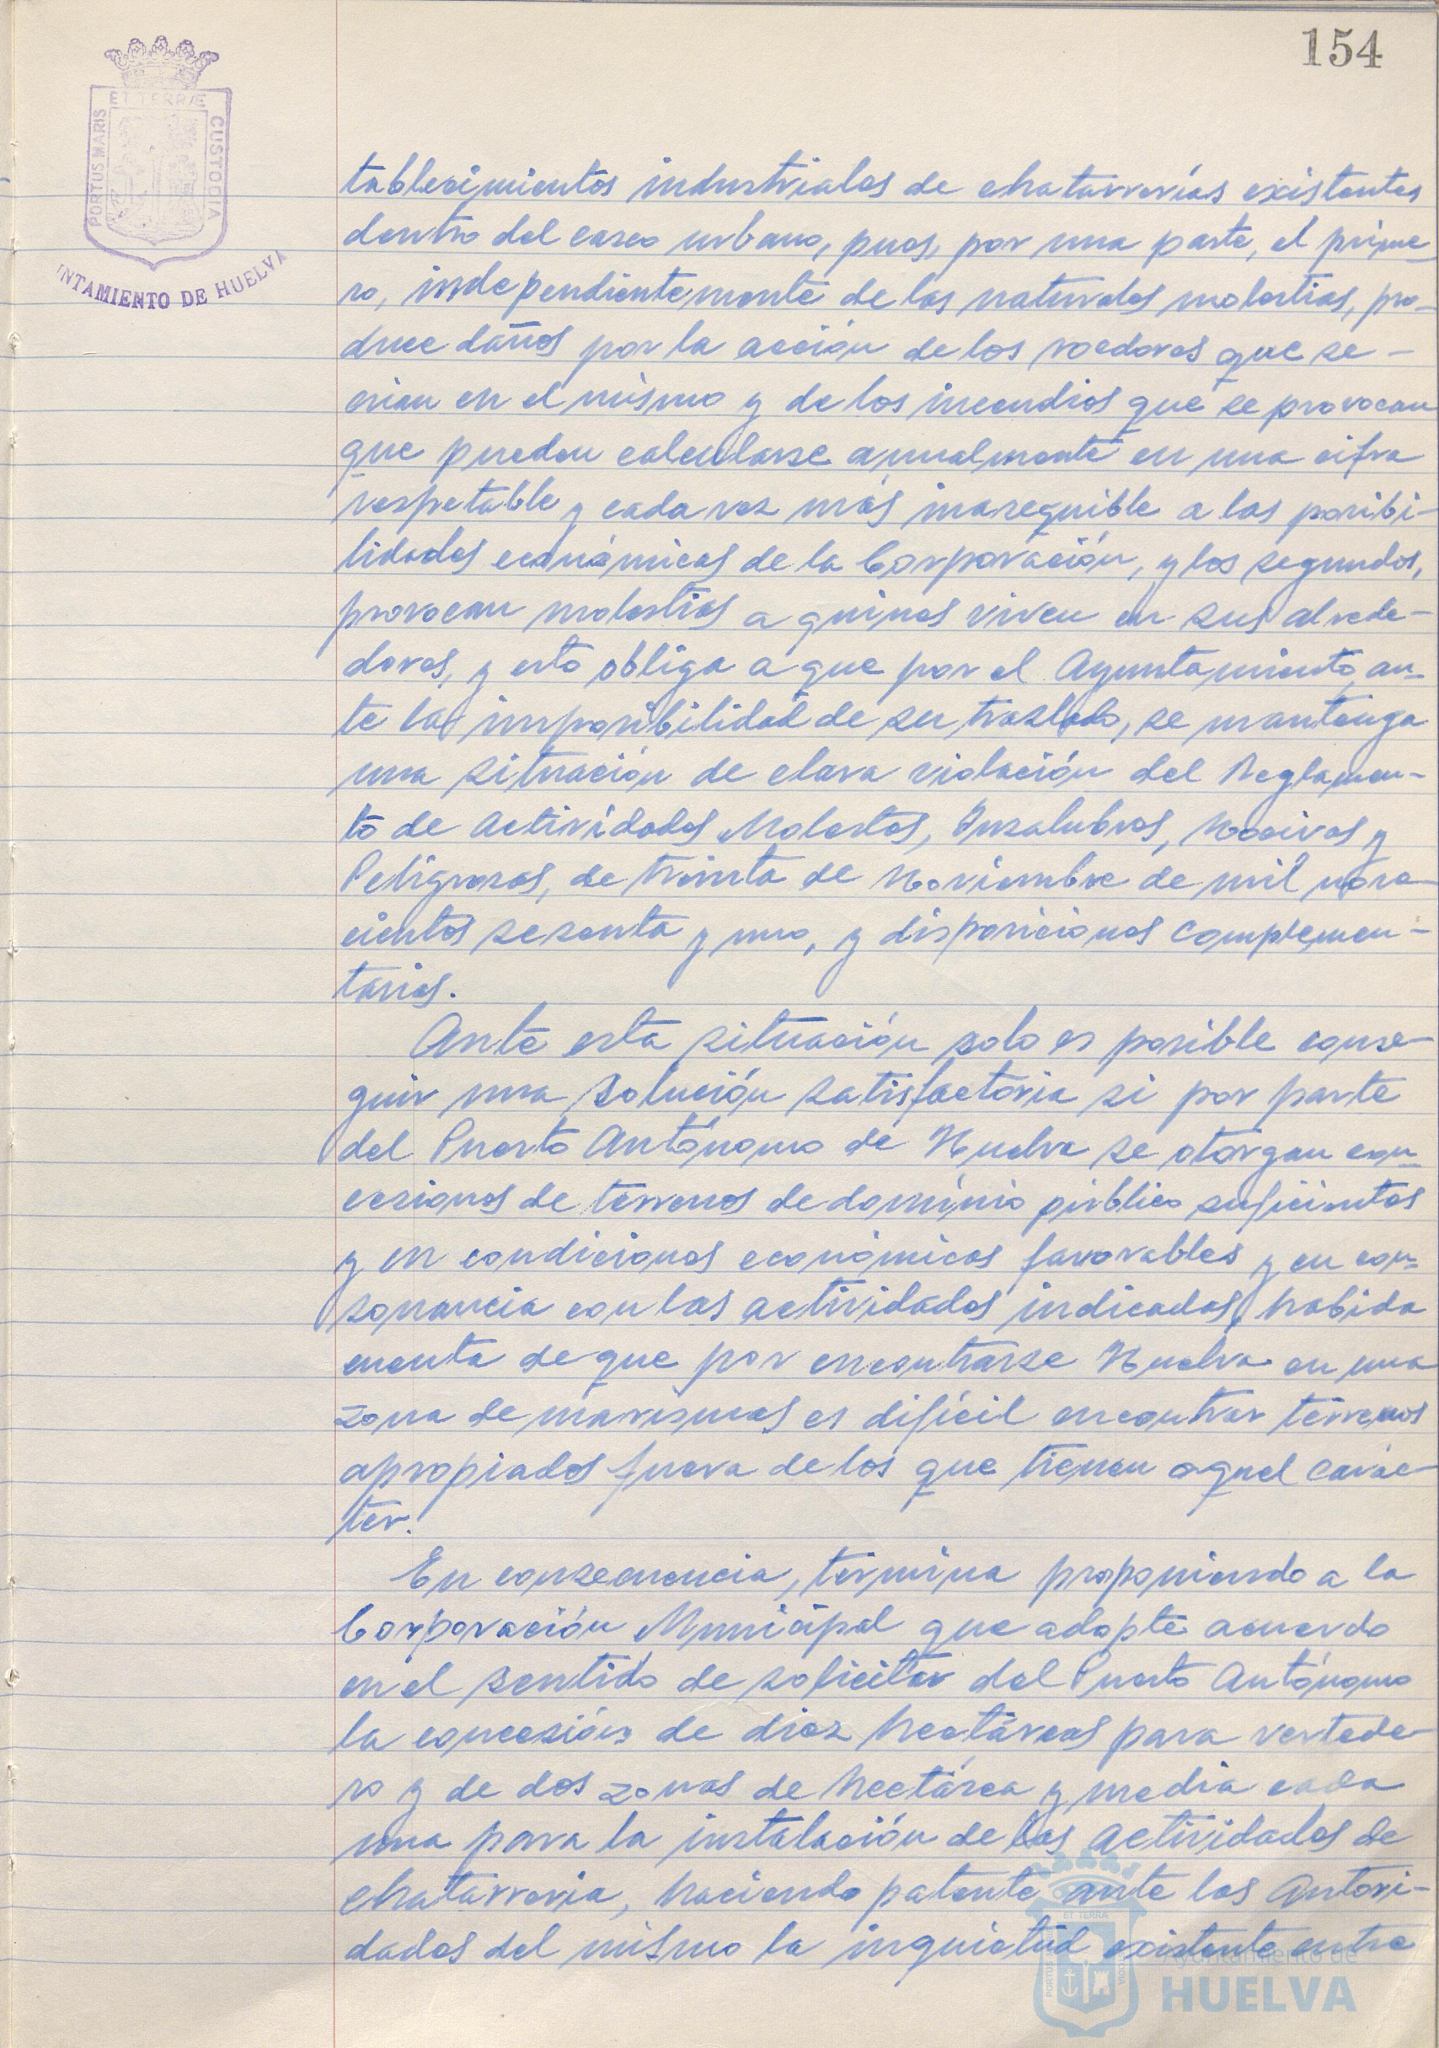 154
ET TERRÆ
PORTUS MARIS
CUSTODIA
UNTAMIENTO DE HUELVA
tablecimientos industriales de chatarrerías existentes
dentro del casco urbano, pues, por una parte, el prime-
ro, independientemente de las naturales molestias, pro-
duce daños por la acción de los roedores que se
crian en el mismo y de los incendios que se provocan
que pueden calcularse anualmente en una cifra
respetable y cada vez más inasequible a las posibi-
lidades económicas de la Corporación, y los segundos,
provocan molestias a quines viven en sus alrede-
dores, y esto obliga a que por el Ayuntamiento, an-
te la imposibilidad de su traslado, se mantenga
una situación de clara violación del Reglamen-
to de Actividades Molestas, Insalubres, Nocivas y
Peligrosas, de treinta de Noviembre de mil nove-
cientos sesenta y uno, y disposiciones complemen-
tarias.
Ante esta situación solo es posible conse-
guir una solución satisfactoria si por parte
del Puerto Autónomo de Huelva se otorgan con-
cesiones de terrenos de dominio público suficientes
y en condiciones económicas favorables y en con-
sonancia con las actividades indicadas, habida
cuenta de que por encontrarse Huelva en una
zona de marismas es difícil encontrar terrenos
apropiados fuera de los que tienen aquel carác-
ter.
En consecuencia, termina proponiendo a la
Corporación Municipal que adopte acuerdo
en el sentido de solicitar del Puerto Autónomo
la concesión de diez hectáreas para vertede-
ro y de dos zonas de hectárea y media cada
una para la instalación de las actividades de
chatarreria, haciendo patente ante las Autori-
dades del mismo la inquietud existente entre
ET TERRÆ
PORTUS
CUSTODIA
Ayuntamiento de
HUELVA